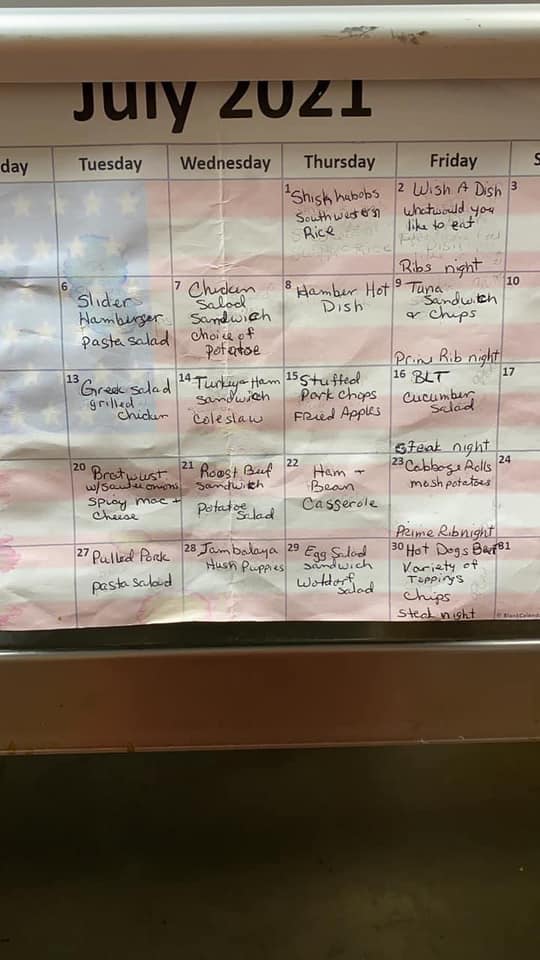 July 2021
day Tuesday Wednesday Thursday Friday S
1 Shish kabobs
Southwestern
Rice
2 Wish A Dish
what would you
like to eat
Ribs night
3
6
Slider
Hamburger
Pasta salad
7 Chicken
Salad
Sandwich
choice of
potatoe
8 Hamber Hot
Dish
9 Tuna
Sandwich
or chips
Prime Rib night
10
13 Greek salad
grilled
chicken
14 Turkey + Ham
sandwich
Coleslaw
15 Stuffed
Pork chops
Fried Apples
16 BLT
Cucumber
Salad
Steak night
17
20 Bratwust
w/ Sautee onions
spicy mac +
Cheese
21 Roast Beef
Sandwich
Potatoe
Salad
22
Ham +
Bean
Casserole
23 Cabbage Rolls
mash potatoes
Prime Rib night
24
27 Pulled Pork
pasta salad
28 Jambalaya
Hush Puppies
29 Egg Salad
Sandwich
Woldorf
Salad
30 Hot Dogs
Variety of
Toppings
Chips
Steak night
31